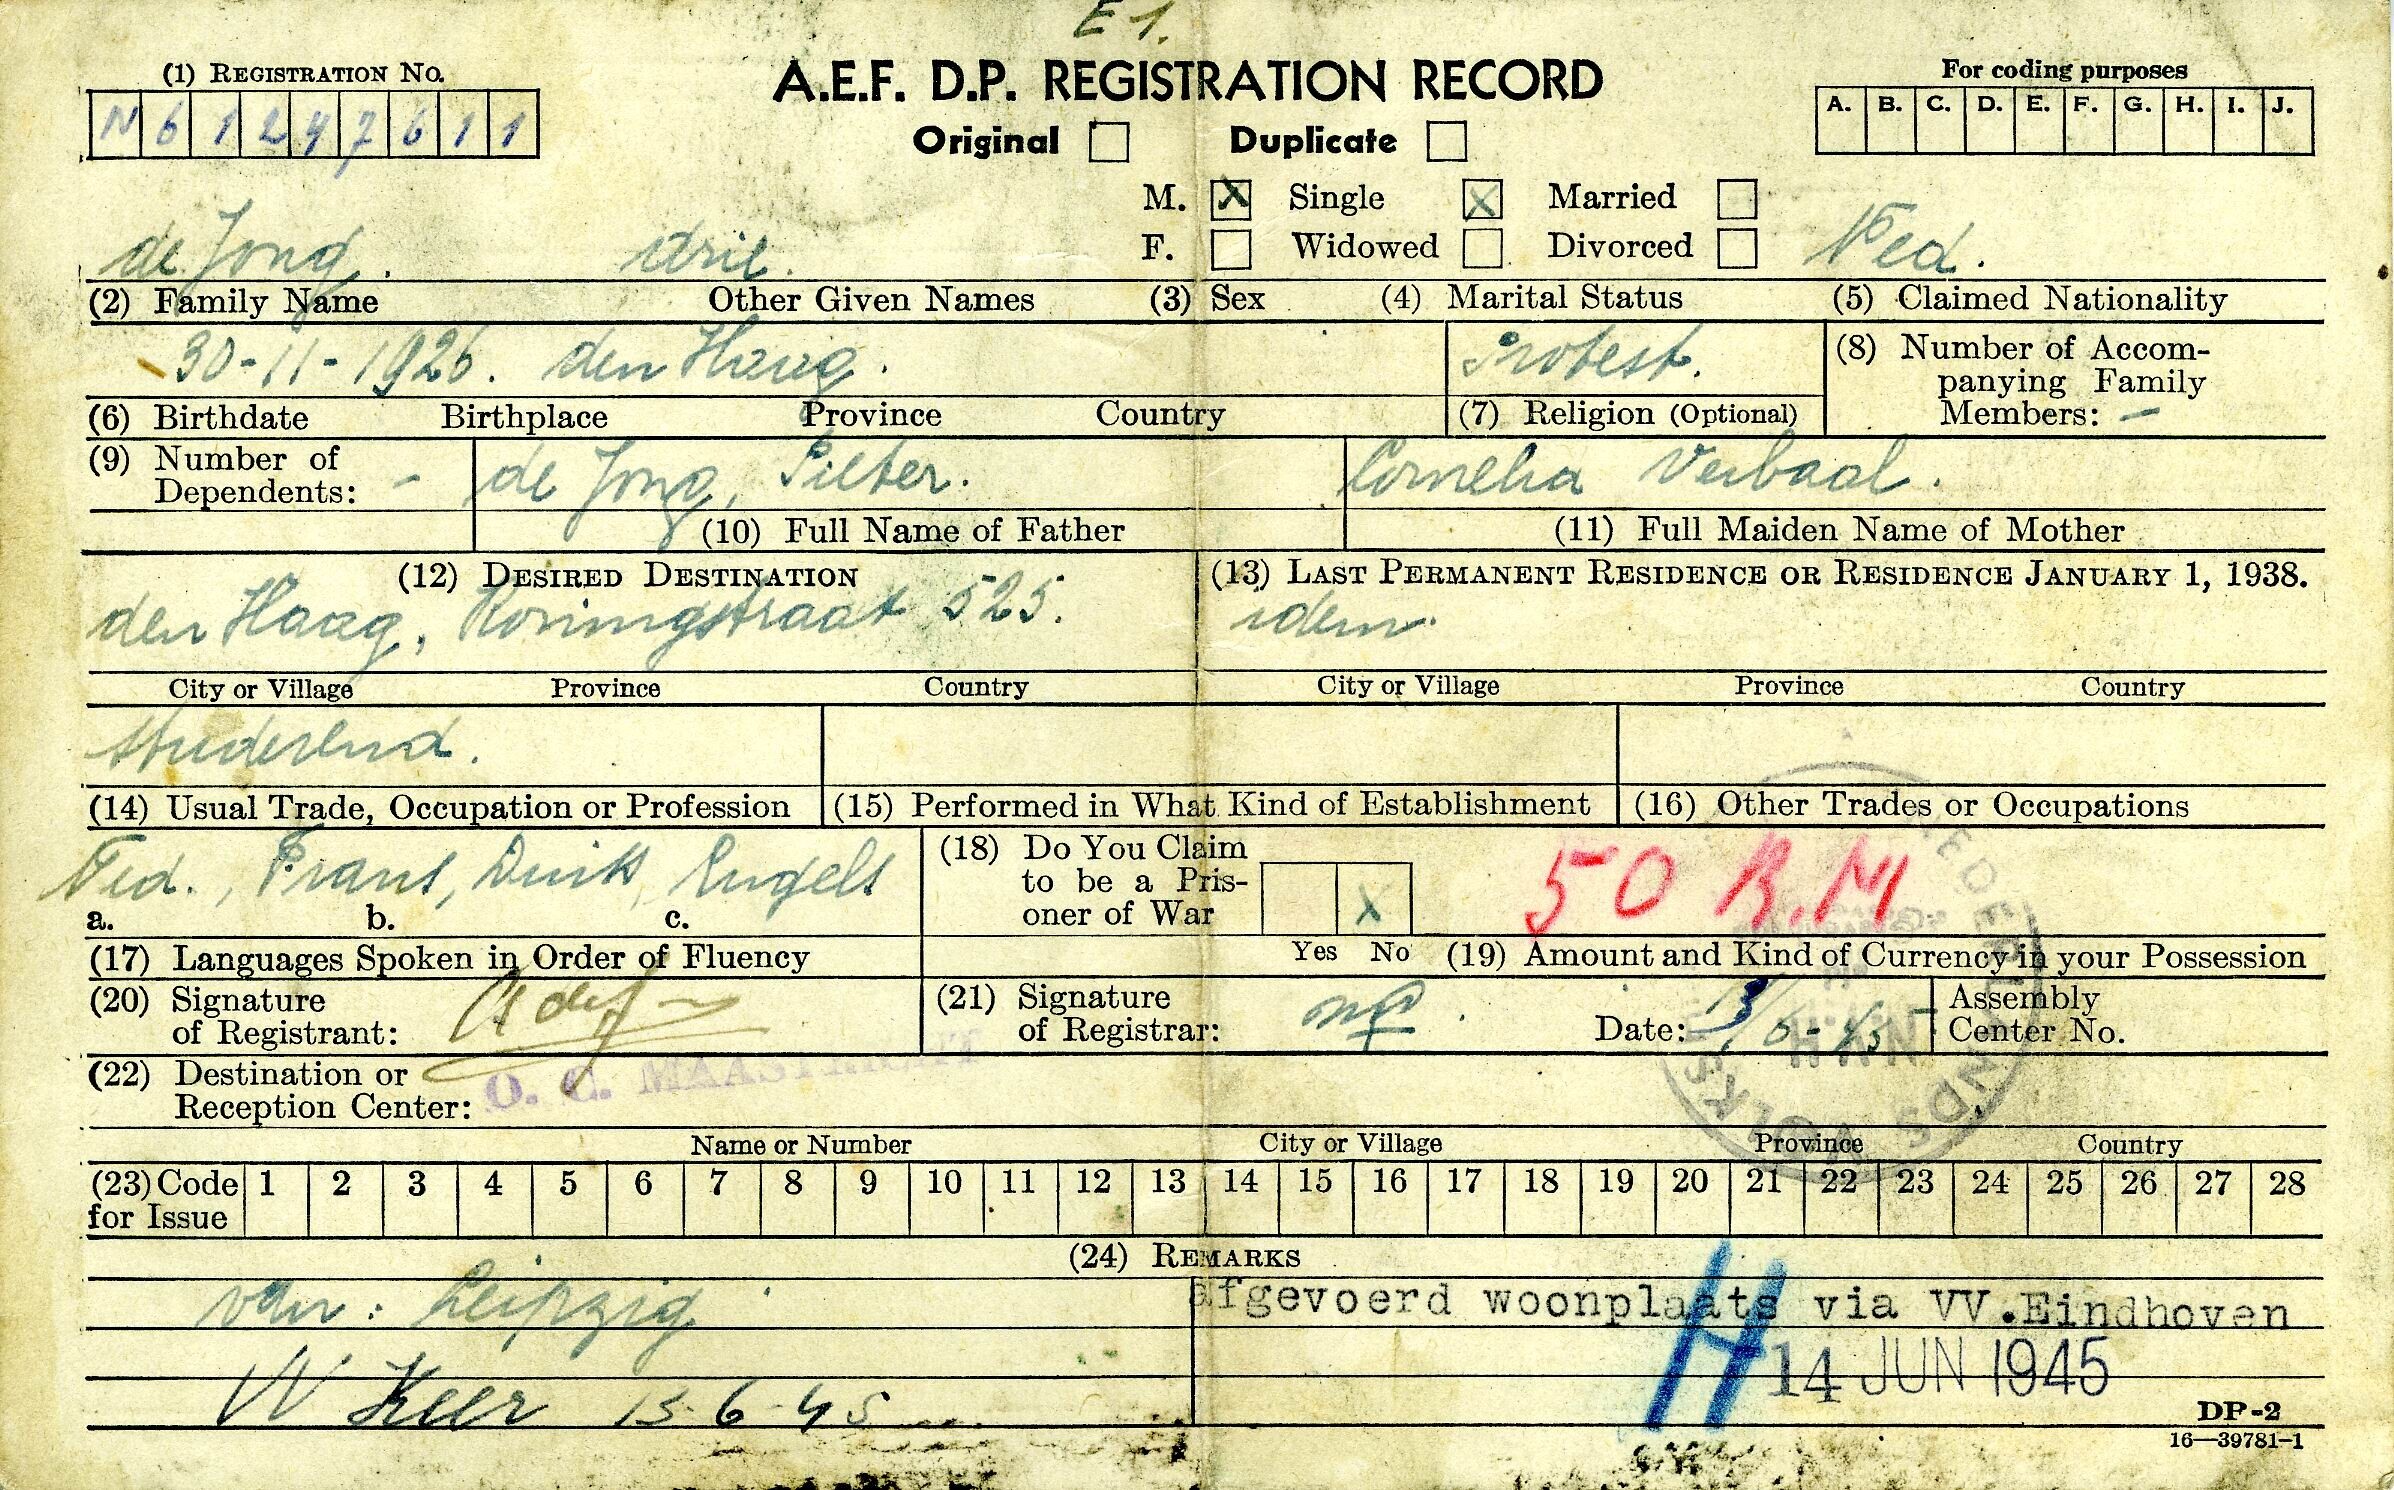 E 1.
(1) REGISTRATION NO.
N 6 1 2 4 7 6 1 1
A.E.F. D.P. REGISTRATION RECORD
Original Duplicate
For coding purposes
A. B. C. D. E. F. G. H. I. J.
M. X Single X Married
F. Widowed Divorced
de Jong. Arie. Ned.
(2) Family Name Other Given Names (3) Sex (4) Marital Status (5) Claimed Nationality
30-11-1926. den Haag. Protest.
(8) Number of Accom-
panying Family
Members: -
(6) Birthdate Birthplace Province Country (7) Religion (Optional)
(9) Number of
Dependents: -
de Jong, Pieter. Cornelia Verbaal.
(10) Full Name of Father (11) Full Maiden Name of Mother
(12) DESIRED DESTINATION (13) LAST PERMANENT RESIDENCE OR RESIDENCE JANUARY 1, 1938.
den Haag, Koningstraat 525. idem.
City or Village Province Country City or Village Province Country
studerend.
(14) Usual Trade, Occupation or Profession (15) Performed in What Kind of Establishment (16) Other Trades or Occupations
Ned., Frans, Duits, Engels
a. b. c.
(18) Do You Claim
to be a Pris-
oner of War
X
Yes No
50 R.M
(17) Languages Spoken in Order of Fluency (19) Amount and Kind of Currency in your Possession
(20) Signature
of Registrant:
(21) Signature
of Registrar:
Date: 13/6-45
Assembly
Center No.
(22) Destination or
Reception Center:
O. C. MAASTRICHT
Name or Number City or Village Province Country
(23) Code
for Issue
1 2 3 4 5 6 7 8 9 10 11 12 13 14 15 16 17 18 19 20 21 22 23 24 25 26 27 28
(24) REMARKS
van: Leipzig
afgevoerd woonplaats via VV.Eindhoven
H
14 JUN 1945
VV Keer 13-6-45
DP-2
16—39781-1